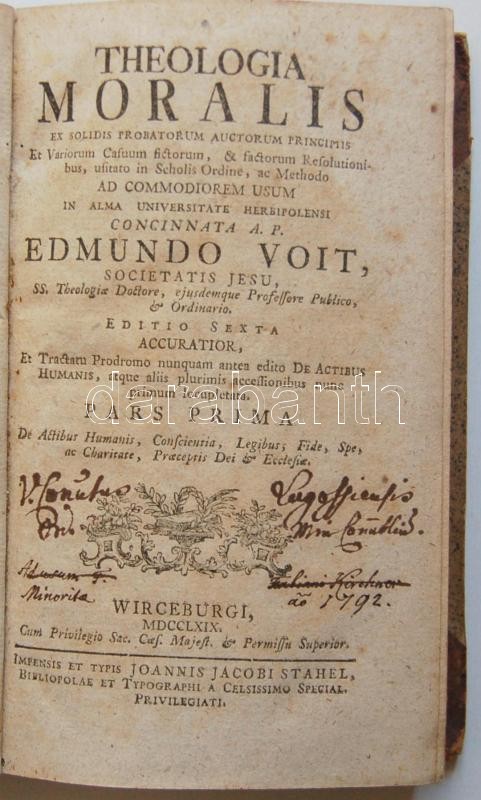 THEOLOGIA
MORALIS
EX SOLIDIS PROBATORUM AUCTORUM PRINCIPIIS
Et Variorum Casuum fictorum, & factorum Resolutioni-
bus, usitato in Scholis Ordine, ac Methodo
AD COMMODIOREM USUM
IN ALMA UNIVERSITATE HERBIPOLENSI
CONCINNATA A. P.
EDMUNDO VOIT,
SOCIETATIS JESU,
SS. Theologiæ Doctore, ejusdemque Professore Publico,
& Ordinario.
EDITIO SEXTA
ACCURATIOR,
Et Tractatu Prodromo nunquam antea edito DE ACTIBUS
HUMANIS, atque aliis plurimis accessionibus nunc
primum locupletata.
PARS PRIMA
darabanth
De Actibus Humanis, Conscientia, Legibus, Fide, Spe,
ac Charitate, Præceptis Dei & Ecclesiæ.
V. Convtus Lugossiensis
Ords Min
Ad usum F. Juliani Kirchner
Minoritæ
aõ 1792.
WIRCEBURGI,
MDCCLXIX.
Cum Privilegio Sac. Cæs. Majest. & Permissu Superior.
IMPENSIS ET TYPIS JOANNIS JACOBI STAHEL,
BIBLIOPOLAE ET TYPOGRAPHI A CELSISSIMO SPECIAL.
PRIVILEGIATI.